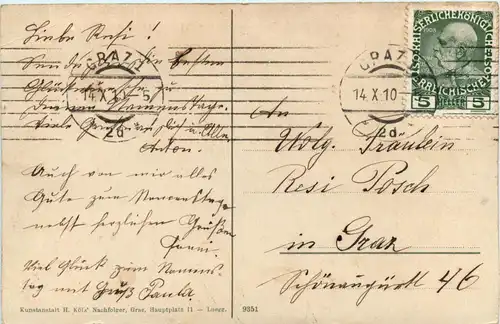 Liebe Resi!
Sende die besten
Glückwünsche zu
Deinem Namenstage.
Viele Grüße an Dich u. Alle
Anton.
Auch von mir alles
Gute zum Namenstage
nebst herzlichen Grüßen
Fanni.
Viel Glück zum Namens
tag mit Gruß Paula
GRAZ 1
14 X 10 - 5
2d
GRAZ 1
14 X 10
2d
KAISERLICHE KÖNIGLICHE
ÖSTERREICHISCHE POST
1908
5 HELLER 5
An
Wolg. Fräulein
Resi Posch
in Graz
Schönaugürtl 46
Kunstanstalt H. Kölz' Nachfolger, Graz, Hauptplatz 11 — Luegg.
9351